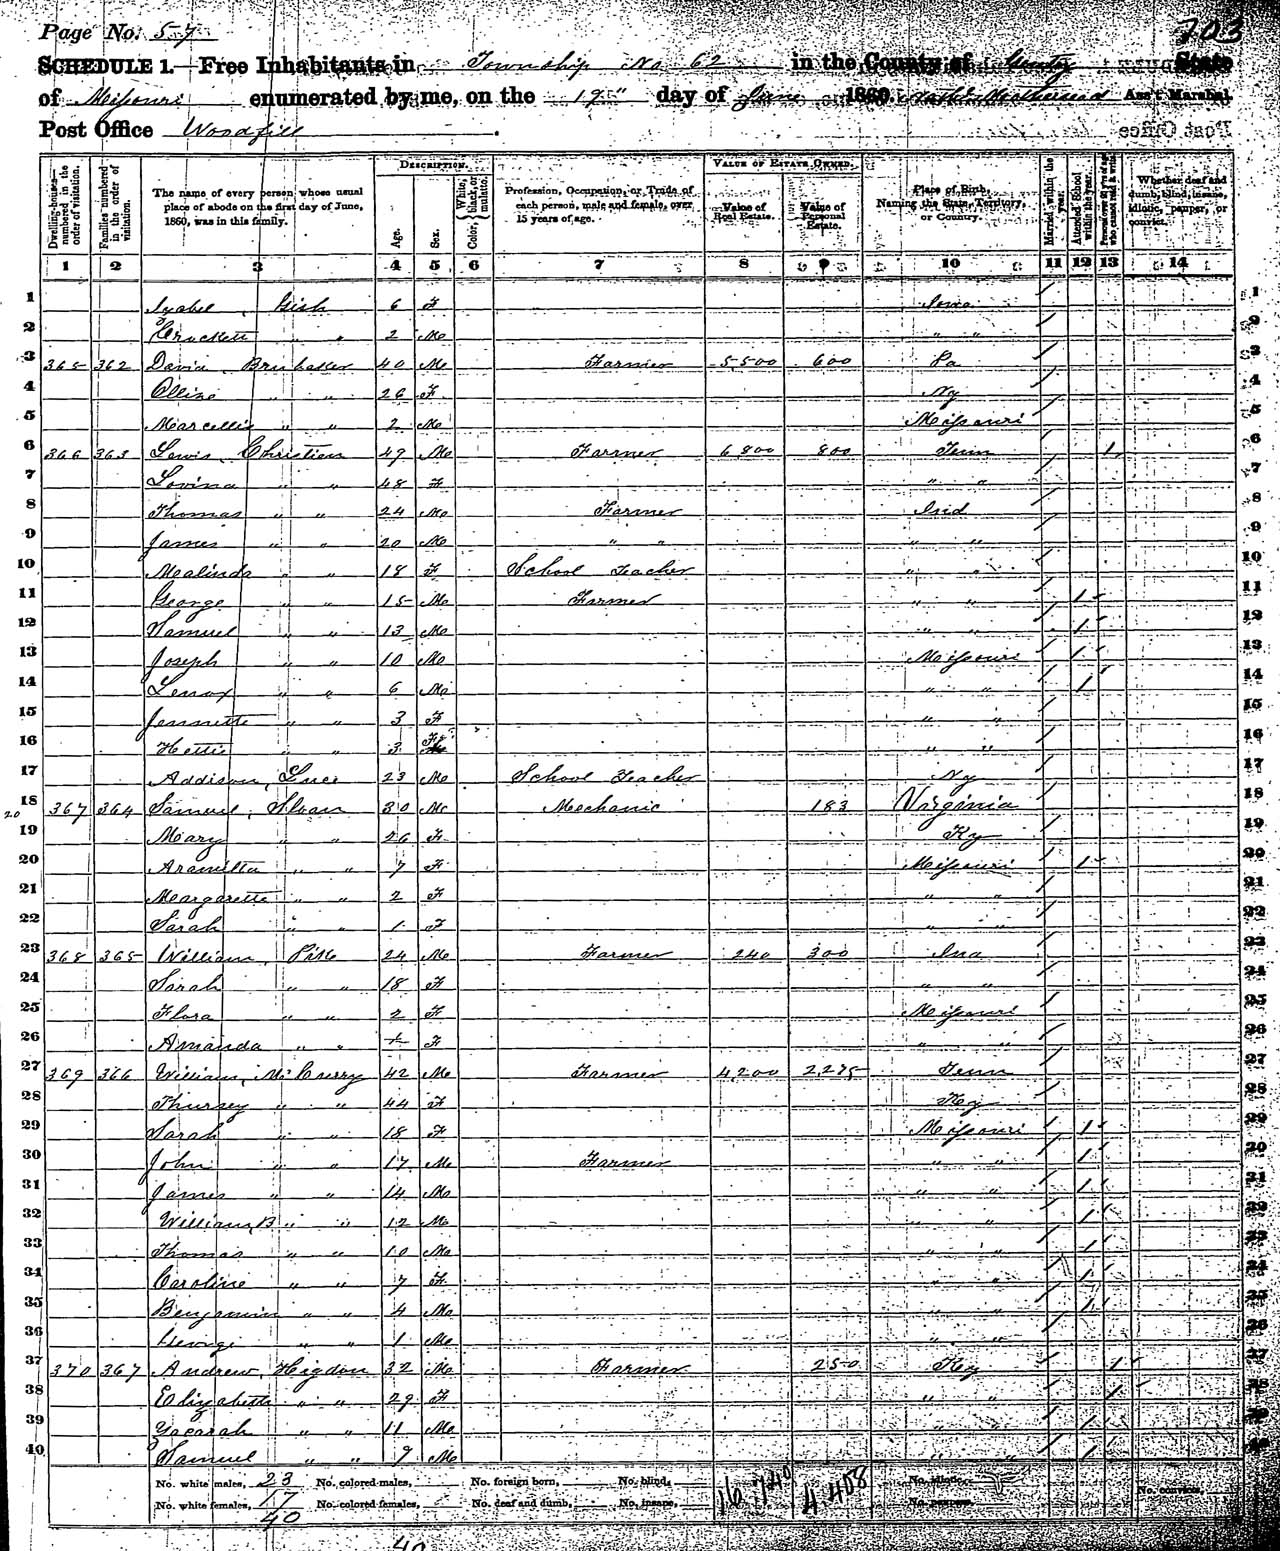 Page No. 57
703
SCHEDULE 1.—Free Inhabitants in Township No 62 in the County of Gentry State
of Missouri enumerated by me, on the 19" day of June 1860. Ass't Marshal.
Post Office Woodfill
Post Office
DESCRIPTION. VALUE OF ESTATE OWNED.
Dwelling-houses—numbered in the order of visitation. Families numbered in the order of visitation. The name of every person whose usual place of abode on the first day of June, 1860, was in this family. Age. Sex. Color, White, black, or mulatto. Profession, Occupation, or Trade of each person, male and female, over 15 years of age. Value of Real Estate. Value of Personal Estate. Place of Birth, Naming the State, Territory, or Country. Married within the year. Attended School within the year. Persons over 20 y'rs of age who cannot read & write. Whether deaf and dumb, blind, insane, idiotic, pauper, or convict.
1 2 3 4 5 6 7 8 9 10 11 12 13 14
1 Izabel Gish 6 F Iowa / 1
2 Crockett " " 2 M " " / 2
3 365 362 David Brubaker 40 M Farmer 5500 600 Pa / 3
4 " " 26 F Ny / 4
5 Marcellis " " 2 M Missouri / 5
6 366 363 Lewis Christian 49 M Farmer 6800 800 Tenn 1 6
7 Lovina " " 48 F " " / 7
8 Thomas " " 24 M Farmer Ind / 8
9 James " " 20 M " " " " / 9
10 Mealinda " " 18 F School Teacher " " / 10
11 George " " 15 M Farmer " " / 1 11
12 Samuel " " 13 M " " / 1 12
13 Joseph " " 10 M Missouri / 1 13
14 Lenox " " 6 M " " / 1 14
15 Jennette " " 3 F " " / 15
16 Hettie " " 3 F " " / 16
17 Addison Luce 23 M School Teacher Ny / 17
18 20 367 364 Samuel Sloan 30 M Mechanic 183 Virginia / 18
19 Mary " " 26 F Ky / 19
20 Aramitta " " 7 F Missouri / 1 20
21 Margarette " " 2 F " " / 21
22 Sarah " " 1 F " " / 22
23 368 365 William Pitt 24 M Farmer 240 300 Ind / 23
24 Sarah " " 18 F " " / 24
25 Flora " " 2 F Missouri / 25
26 Amanda " " F " " / 26
27 369 366 William McCurry 42 M Farmer 4,200 2,275 Tenn / 27
28 Thursey " " 44 F Ky / 28
29 Sarah " " 18 F Missouri / 1 29
30 John " " 17 M Farmer " " / 1 30
31 James " " 14 M " " / 1 31
32 William B " " 12 M " " / 1 32
33 Thomas " " 10 M " " / 1 33
34 Caroline " " 7 F " " / 1 34
35 Benjamin " " 4 M " " / 1 35
36 George " " 1 M " " / 36
37 370 367 Andrew Higdon 32 M Farmer 250 Ky / 1 37
38 Elizabeth " " 29 F " " / 1 38
39 " " 11 M " " / 1 39
40 Samuel " " 9 M " " / 1 40
No. white males, 23 No. colored males, No. foreign born, No. blind, 16 740 4 408 No. idiotic,
No. white females, 17 No. colored females, No. deaf and dumb, No. insane, No. paupers, No. convicts,
40
40